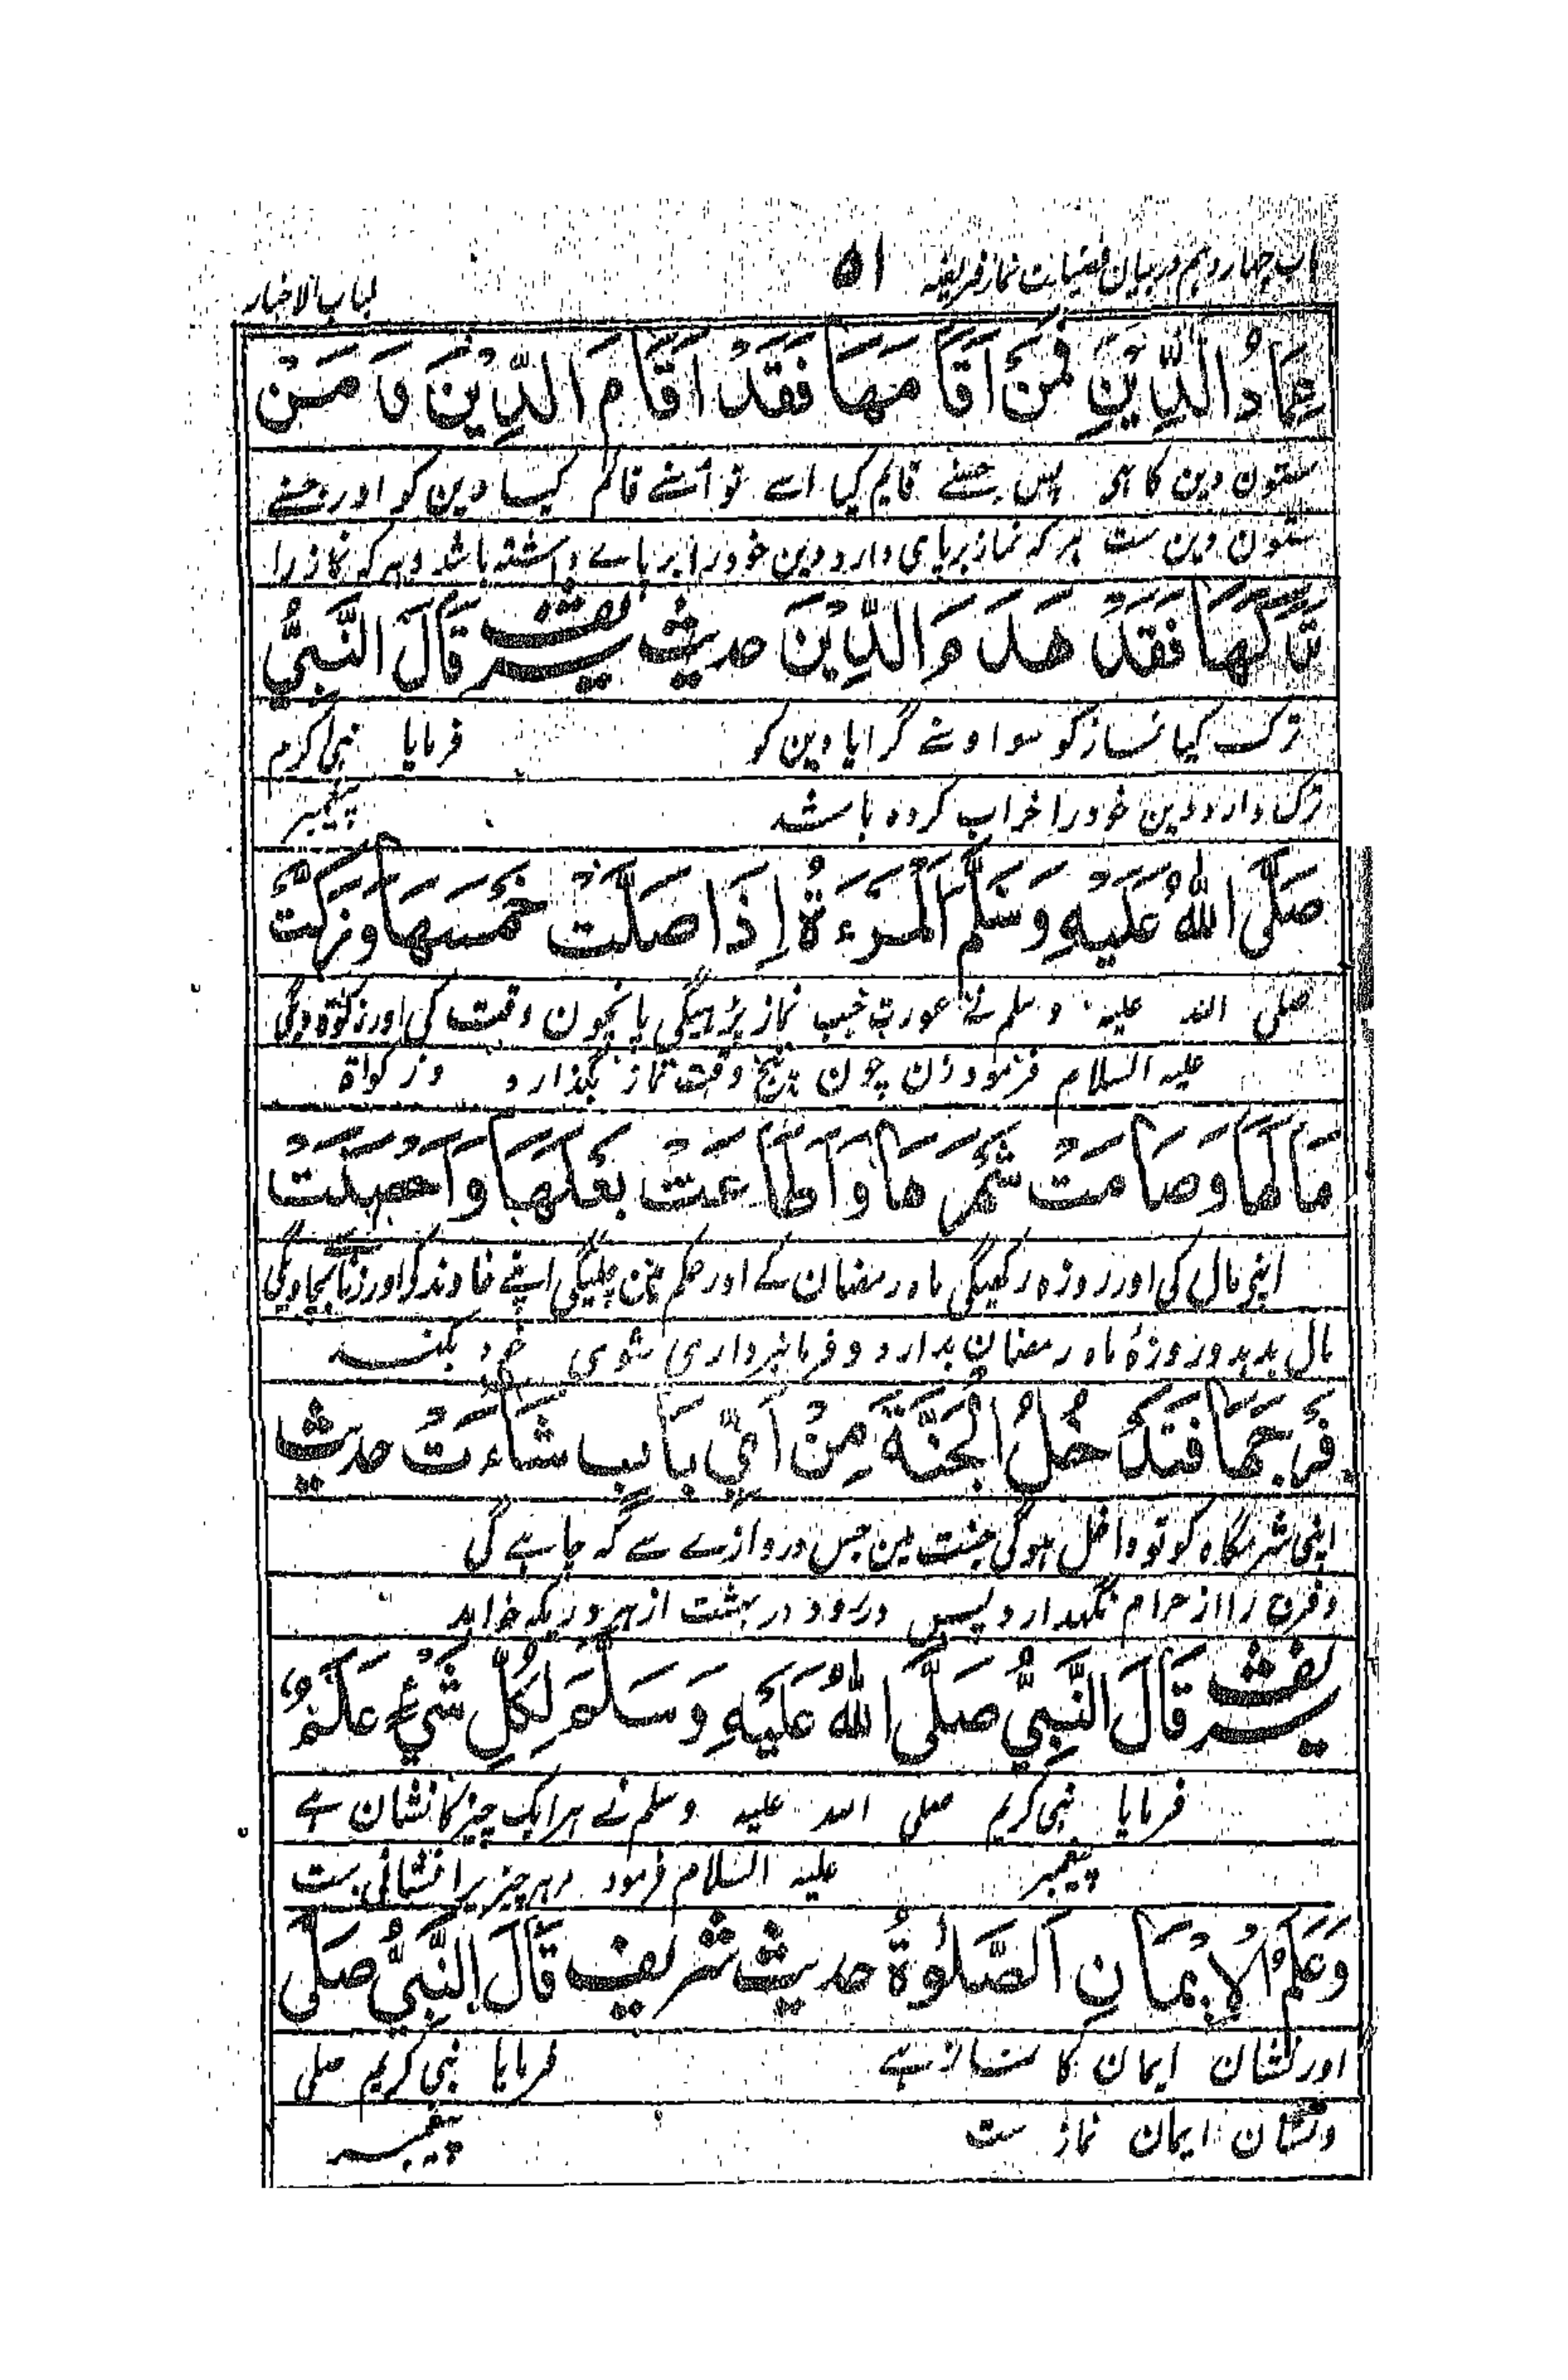 باب چہاردہم در بیان فضیلت نماز فریضہ ۵۱ لباب الاخبار
عِمَادُ الدِّیْنِ فَمَنْ اَقَامَهَا فَقَدْ اَقَامَ الدِّیْنَ وَ مَنْ
ستون دین کا ہی پس جسنے قایم کیا اسے تو اُسنے قائم کیا دین کو اور جسنے
ستون دین ست ہر کہ نماز برپای دارد دین خود را برپاے داشتہ باشد و ہر کہ نماز را
تَرَكَهَا فَقَدْ هَدَمَ الدِّیْنَ حدیث شریف قَالَ النَّبِیُّ
ترک کیا نماز کو سو اوسنے گرایا دین کو فرمایا نبی اکرم
ترک دارد دین خود را خراب کردہ باشد پیغمبر
صَلَّی اللهُ عَلَیْهِ وَسَلَّمَ اَلْمَرْءَةُ اِذَا صَلَّتْ خَمْسَهَا وَزَكَّتْ
صلی اللہ علیہ وسلم نے عورت جب نماز پڑہیگی پانچون وقت کی اور زکٰوۃ دیگی
علیہ السلام فرمود زن چون پنج وقت نماز بگذارد و زکواۃ
مَالَهَا وَصَامَتْ شَهْرَهَا وَاَطَاعَتْ بَعْلَهَا وَاَحْصَنَتْ
اپنی مال کی اور روزہ رکھیگی ماہ رمضان کے اور حکم مین چلیگی اپنے خاوند کو اور زنا سے بچاویگی
مال بدہد و روزۂ ماہ رمضان بدارد و فرمانبرداری شوی خود بکند
فَرْجَهَا فَتَدْخُلُ الْجَنَّةَ مِنْ اَیِّ بَابٍ شَاءَتْ حدیث
اپنی شرمگاہ کو تو داخل ہوگی جنت مین جس دروازے سے کہ چاہے گی
وفرج را از حرام نگہدارد پس دررود در بہشت از ہر دریکہ خواہد
شریف قَالَ النَّبِیُّ صَلَّی اللهُ عَلَیْهِ وَسَلَّمَ لِكُلِّ شَیْءٍ عَلَمٌ
فرمایا نبی کریم صلی اللہ علیہ وسلم نے ہر ایک چیز کا نشان ہے
پیغمبر علیہ السلام فرمود ہر چیز یرا نشانی ست
وَعَلَمُ الْاِیْمَانِ اَلصَّلٰوةُ حدیث شریف قَالَ النَّبِیُّ صَلَّی
اور نشان ایمان کا نماز ہے فرمایا نبی کریم صلی
ونشان ایمان نماز ست پیغمبر